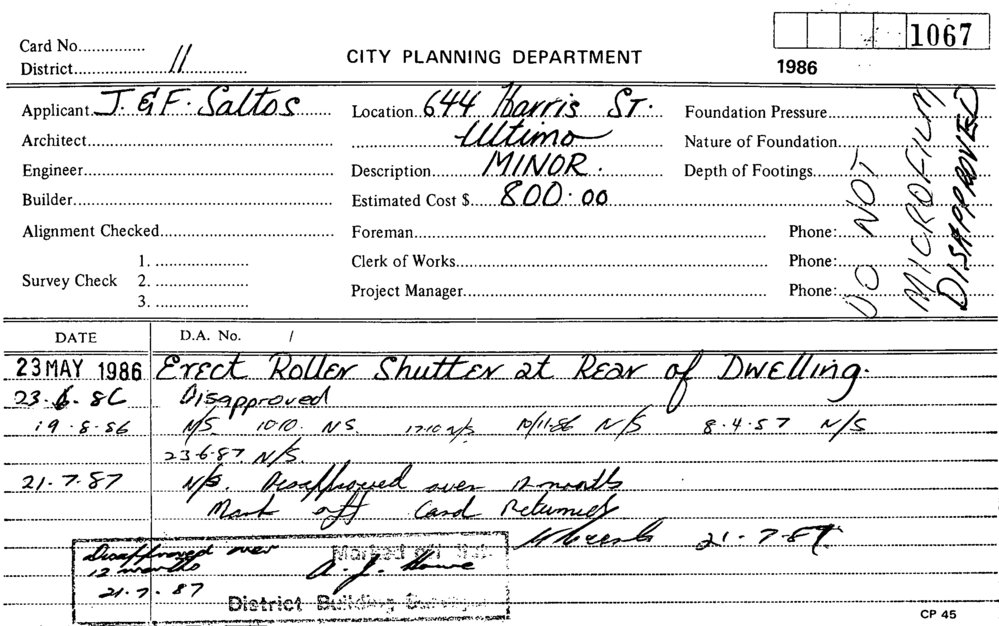 Card No...............
1067
District............11............
CITY PLANNING DEPARTMENT
1986
Applicant J. & F. Saltos
Location 644 Harris St.
Foundation Pressure
Architect
Ultimo
Nature of Foundation
Engineer
Description MINOR.
Depth of Footings
Builder
Estimated Cost $ 800.00
Alignment Checked
Foreman
Phone:
Survey Check
1.
Clerk of Works
Phone:
2.
Project Manager
Phone:
3.
DO NOT
MICROFILM
DISAPPROVED
DATE
D.A. No. /
23 MAY 1986 Erect Roller Shutter at Rear of Dwelling.
23.6.86 Disapproved
19.8.86 N/S. 10.10. N.S. 17.10 N/S 10/11.86 N/S 8.4.87 N/S
23.6.87 N/S.
21.7.87 N/S. Disapproved over 12 months
Mark off Card Returned
21.7.87
Disapproved over
12 months
21.7.87
Marked off
A. J. Howe
District Building Surveyor
CP 45